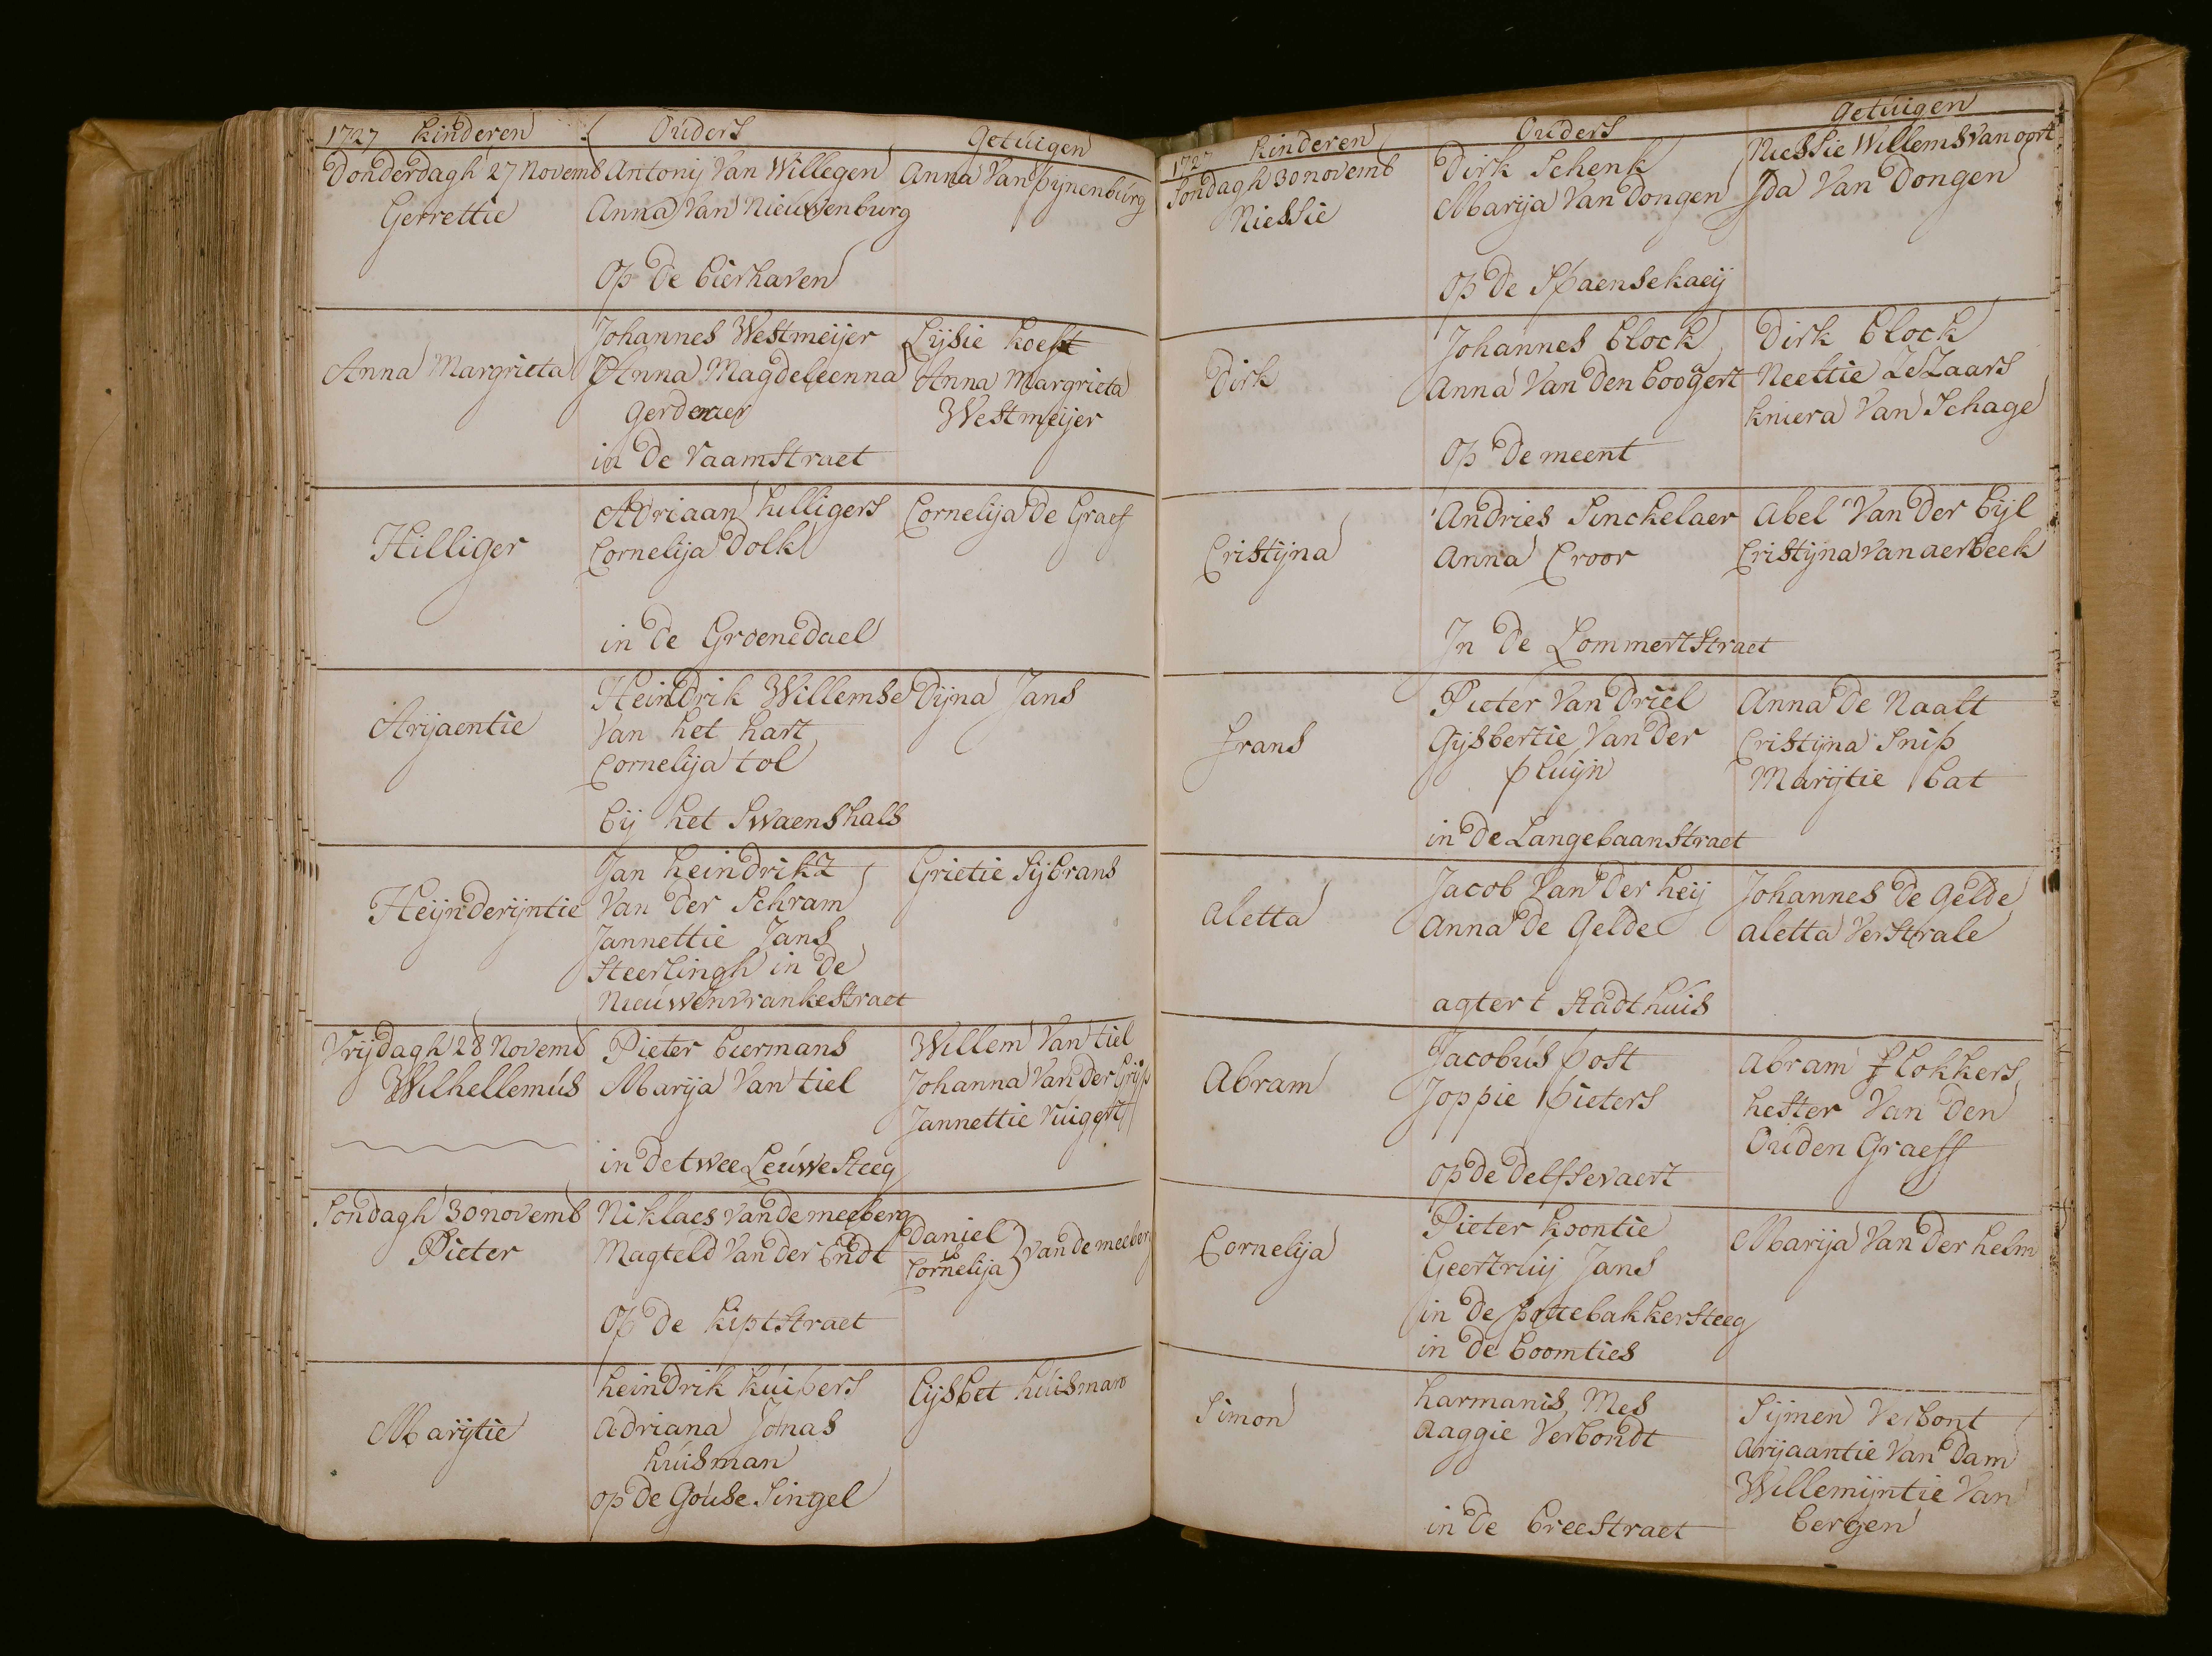 1727 kinderen Ouders Getuigen
Donderdagh 27 Novemb Antonij Van Willegen Anna Van pijnenburg
Gerrettie Anna Van Nieuwenburg
Op De bierhaven
Johannes Westmeijer Lijsie koest
Anna Margrieta Anna Magdeleenna Anna Margrieta
Westmeijer
in De Raamstraet
Adriaan hilligers Cornelija De Graef
Hilliger Cornelija Dolk
in de Groenedael
Heindrik Willemse Dijna Jans
Arijaentie Van het hart
Cornelija tol
bij het Swaenshals
Jan heindrikz Grietie Sijbrans
Heijnderijntie Van Der Schram
Jannettie Jans
Steerlingh in De
Nieuwenvrankestraet
Vrijdagh 28 Novemb Pieter biermans Willem Van tiel
Wilhellemus Marija Van tiel Johanna Van Der Grijp
Jannettie Ruigert
in De twee Leuwe Steeg
Sondagh 30 novemb Niklaes Van de meeberg Daniel
Pieter Magteld Van Der Endt Cornelija } Van de meeberg
Op De kipstraet
heindrik kuibers Lijsbet huisman
Marijtie Adriana Jonas
huisman
op De Gouse Singel
1727 kinderen Ouders Getuigen
Sondagh 30 novemb Dirk Schenk Niessie Willems Van oort
Niessie Marija Van Dongen Ida Van Dongen
op De Spaensekaeij
Johannes block Dirk block
Dirk Anna Van Den boogert Neeltie LeZaars
kniera Van Schage
Op De meent
Andries Sinckelaer Abel Van Der bijl
Cristijna Anna Croor Cristijna Van aerbeek
In De Lommertstraet
Pieter Van Driel Anna De Naalt
Frans Gijsbertie Van Der Cristijna Snip
pluijn Marijtie bat
in De Langebaanstraet
Jacob Van Der heij Johannes De Gelde
Aletta Anna De Gelde Aletta Verstrale
agter t Stadthuis
Jacobus post Abram Flokkers
Abram Joppie pieters hester Van Den
Ouden Graeff
op De Delfsevaert
Pieter koontie Marija Van Der helm
Cornelija Geertruij Jans
in De pottebakkersteeg
in De boomties
harmanis Mes Sijmen Verbont
Simon Aaggie Verbondt Arijaantie Van Dam
Willemijntie Van
in De breestraet bergen